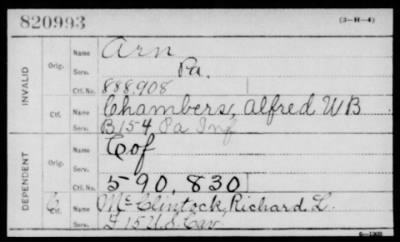 820993 (3-H-4)
INVALID
Orig. Name Arn
Serv. Pa.
Ctf. No. 888,908
Ctf. Name Chambers, Alfred W B
Serv. B 154 Pa Inf
DEPENDENT
Orig. Name Cof
Serv.
Ctf. No. 590,830
C Ctf. Name McClintock, Richard L.
Serv. F 15 U.S. Cav